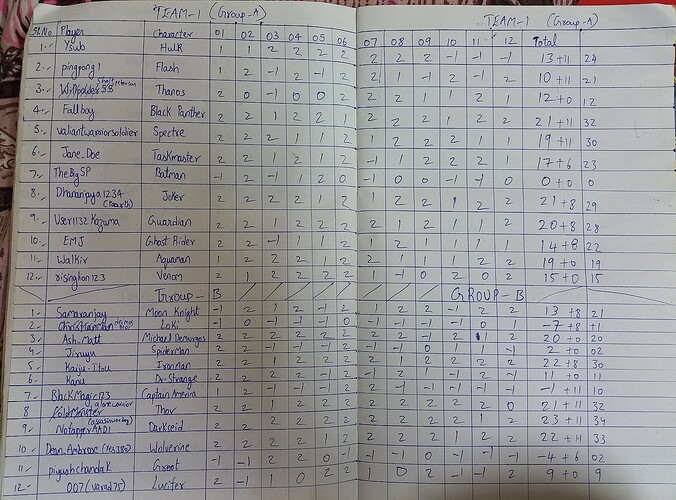 TEAM-1 (Group-A) TEAM-1 (Group-A)
Sl.No Player Character 01 02 03 04 05 06 07 08 09 10 11 12 Total
1. Ysub Hulk 1 1 2 2 2 2 2 2 2 -1 -1 -1 13+11 24
2. pingpong1 Flash 2 -1 2 -1 2 2 1 -1 2 -1 2 10+11 21
3. Thanos 2 0 -1 0 0 2 2 2 1 1 2 1 12+0 12
4. Fallboy Black Panther 2 2 2 1 2 1 2 2 2 1 2 2 21+11 32
5. valiantwarriorsoldier Spectre 2 2 2 1 1 2 1 2 2 2 1 1 19+11 30
6. Jane_Doe Taskmaster 2 2 1 2 1 2 -1 1 2 2 2 1 17+6 23
7. TheBigSP Batman -1 2 -1 1 2 0 -1 0 0 -1 -1 0 0+0 0
8. Dhananjaya1234 Joker 2 2 2 2 1 2 1 2 2 1 2 2 21+8 29
9. User1132 Kazuma Guardian 2 2 1 2 2 2 2 1 2 1 1 2 20+8 28
10. EMJ Ghost Rider 2 2 -1 1 1 2 1 2 1 1 1 1 14+8 22
11. Walkir Aquaman 1 2 2 2 1 2 2 1 1 1 2 2 19+0 19
12. risingkon123 Venom 2 1 2 2 2 2 1 -1 0 2 0 2 15+0 15
Group-B GROUP-B
1. Samaranjay Moon Knight -1 2 1 2 -1 2 1 2 2 -1 2 2 13+8 21
2. Loki -1 0 -1 -1 -1 0 -1 -1 -1 -1 0 1 -7+8 +1
3. Ash_Matt Michael Demiurgos 2 2 2 2 2 2 2 2 -1 2 1 2 20+0 20
4. Jiruyu Spiderman 2 2 -1 -1 -1 2 -1 -1 0 1 -1 2+0 02
5. Kaiju-Itou Ironman 2 2 2 2 2 2 1 1 2 2 2 2 22+8 30
6. Kanu Dr. Strange 2 2 2 -1 -1 2 2 2 1 1 1 -1 11+0 11
7. BlackMagic123 Captain America 1 1 2 -1 -1 2 2 -1 -1 -1 -1 -1 -1+11 10
8 alonewarrior Thor 2 2 1 2 2 2 2 2 2 2 2 0 21+11 32
9. Notapper AAD1 Darkseid 2 2 2 2 2 2 2 2 2 2 1 2 23+11 34
10. Dean_Ambrose Wolverine 2 2 2 2 1 2 2 2 2 1 2 2 22+11 33
11. piyushchandak Groot -1 -1 2 2 0 -1 -1 -1 0 -1 -1 -1 -4+6 02
12. 007 (varad75) Lucifer 2 -1 1 0 2 2 1 0 2 -1 -1 2 9+0 9